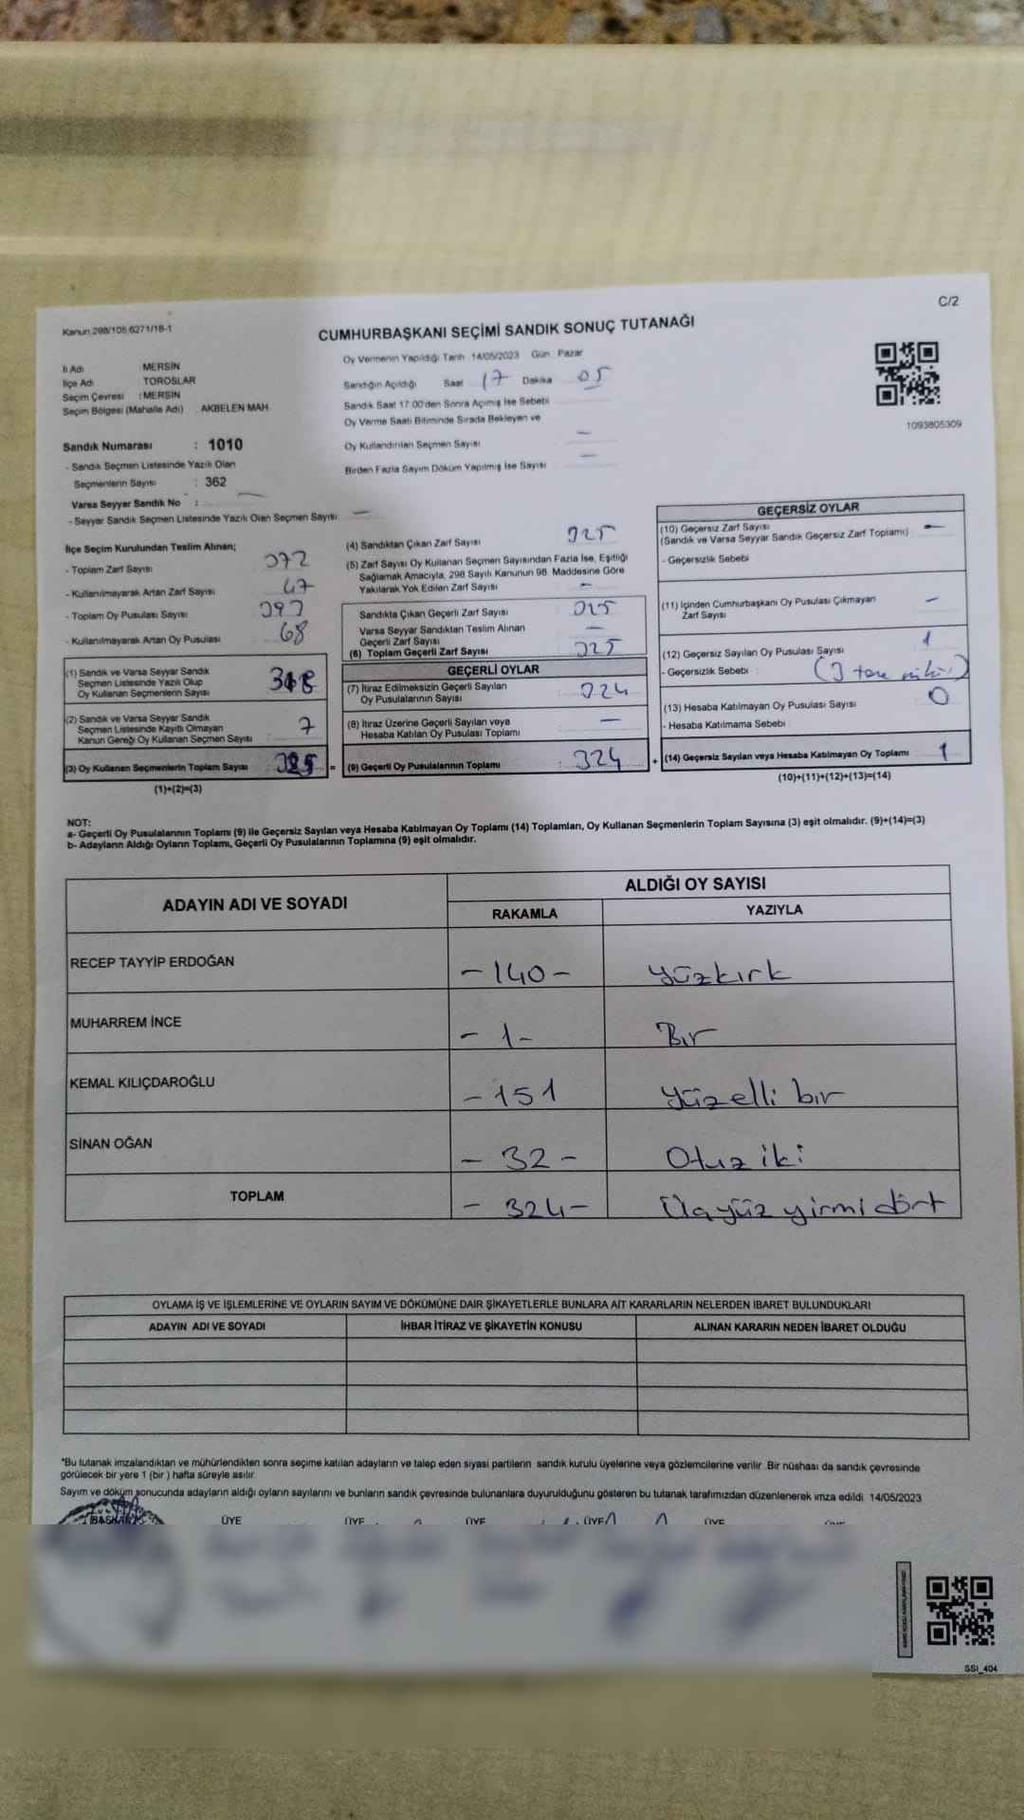 C/2
Kanun 298/105 6271/18-1
CUMHURBAŞKANI SEÇİMİ SANDIK SONUÇ TUTANAĞI
İl Adı MERSİN
İlçe Adı TOROSLAR
Seçim Çevresi : MERSİN
Seçim Bölgesi (Mahalle Adı) AKBELEN MAH.
Sandık Numarası : 1010
- Sandık Seçmen Listesinde Yazılı Olan
Seçmenlerin Sayısı : 362
Varsa Seyyar Sandık No :
- Seyyar Sandık Seçmen Listesinde Yazılı Olan Seçmen Sayısı
Oy Vermenin Yapıldığı Tarih 14/05/2023 Gün Pazar
Sandığın Açıldığı Saat 17 Dakika 05
Sandık Saat 17:00'den Sonra Açımış İse Sebebi
Oy Verme Saati Bitiminde Sırada Bekleyen ve
Oy Kullandırılan Seçmen Sayısı
Birden Fazla Sayım Döküm Yapılmış İse Sayısı
1093805309
İlçe Seçim Kurulundan Teslim Alınan;
- Toplam Zarf Sayısı 372
- Kullanılmayarak Artan Zarf Sayısı 47
- Toplam Oy Pusulası Sayısı 393
- Kullanılmayarak Artan Oy Pusulası 68
(1) Sandık ve Varsa Seyyar Sandık
Seçmen Listesinde Yazılı Olup
Oy Kullanan Seçmenlerin Sayısı 318
(2) Sandık ve Varsa Seyyar Sandık
Seçmen Listesinde Kayıtlı Olmayan
Kanun Gereği Oy Kullanan Seçmen Sayısı 7
(3) Oy Kullanan Seçmenlerin Toplam Sayısı 325 =
(1)+(2)=(3)
(4) Sandıktan Çıkan Zarf Sayısı 325
(5) Zarf Sayısı Oy Kullanan Seçmen Sayısından Fazla İse, Eşitliği
Sağlamak Amacıyla, 298 Sayılı Kanunun 98. Maddesine Göre
Yakılarak Yok Edilen Zarf Sayısı -
Sandıkta Çıkan Geçerli Zarf Sayısı 325
Varsa Seyyar Sandıktan Teslim Alınan
Geçerli Zarf Sayısı -
(6) Toplam Geçerli Zarf Sayısı 325
GEÇERLİ OYLAR
(7) İtiraz Edilmeksizin Geçerli Sayılan
Oy Pusulalarının Sayısı 324
(8) İtiraz Üzerine Geçerli Sayılan veya
Hesaba Katılan Oy Pusulası Toplamı -
(9) Geçerli Oy Pusulalarının Toplamı : 324 +
GEÇERSİZ OYLAR
(10) Geçersiz Zarf Sayısı -
(Sandık ve Varsa Seyyar Sandık Geçersiz Zarf Toplamı)
- Geçersizlik Sebebi
(11) İçinden Cumhurbaşkanı Oy Pusulası Çıkmayan
Zarf Sayısı -
(12) Geçersiz Sayılan Oy Pusulası Sayısı 1
- Geçersizlik Sebebi
(13) Hesaba Katılmayan Oy Pusulası Sayısı 0
- Hesaba Katılmama Sebebi
(14) Geçersiz Sayılan veya Hesaba Katılmayan Oy Toplamı 1
(10)+(11)+(12)+(13)=(14)
NOT:
a- Geçerli Oy Pusulalarının Toplamı (9) ile Geçersiz Sayılan veya Hesaba Katılmayan Oy Toplamı (14) Toplamları, Oy Kullanan Seçmenlerin Toplam Sayısına (3) eşit olmalıdır. (9)+(14)=(3)
b- Adayların Aldığı Oyların Toplamı, Geçerli Oy Pusulalarının Toplamına (9) eşit olmalıdır.
ADAYIN ADI VE SOYADI ALDIĞI OY SAYISI
RAKAMLA YAZIYLA
RECEP TAYYİP ERDOĞAN - 140 - yüzkırk
MUHARREM İNCE - 1 - Bır
KEMAL KILIÇDAROĞLU - 151 yüzelli bır
SİNAN OĞAN - 32 - Otuz iki
TOPLAM - 324 - Üçyüz yirmi dört
OYLAMA İŞ VE İŞLEMLERİNE VE OYLARIN SAYIM VE DÖKÜMÜNE DAİR ŞİKAYETLERLE BUNLARA AİT KARARLARIN NELERDEN İBARET BULUNDUKLARI
ADAYIN ADI VE SOYADI İHBAR İTİRAZ VE ŞİKAYETİN KONUSU ALINAN KARARIN NEDEN İBARET OLDUĞU
*Bu tutanak imzalandıktan ve mühürlendikten sonra seçime katılan adayların ve talep eden siyasi partilerin sandık kurulu üyelerine veya gözlemcilerine verilir. Bir nüshası da sandık çevresinde
görülecek bir yere 1 (bir ) hafta süreyle asılır.
Sayım ve döküm sonucunda adayların aldığı oyların sayılarını ve bunların sandık çevresinde bulunanlara duyurulduğunu gösteren bu tutanak tarafımızdan düzenlenerek imza edildi. 14/05/2023
BAŞKAN ÜYE ÜYE ÜYE ÜYE ÜYE
SSI_404